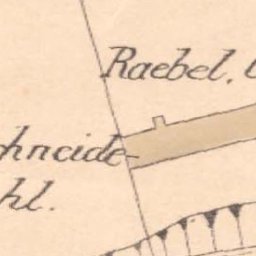 Raebel.
hneide-
hl.